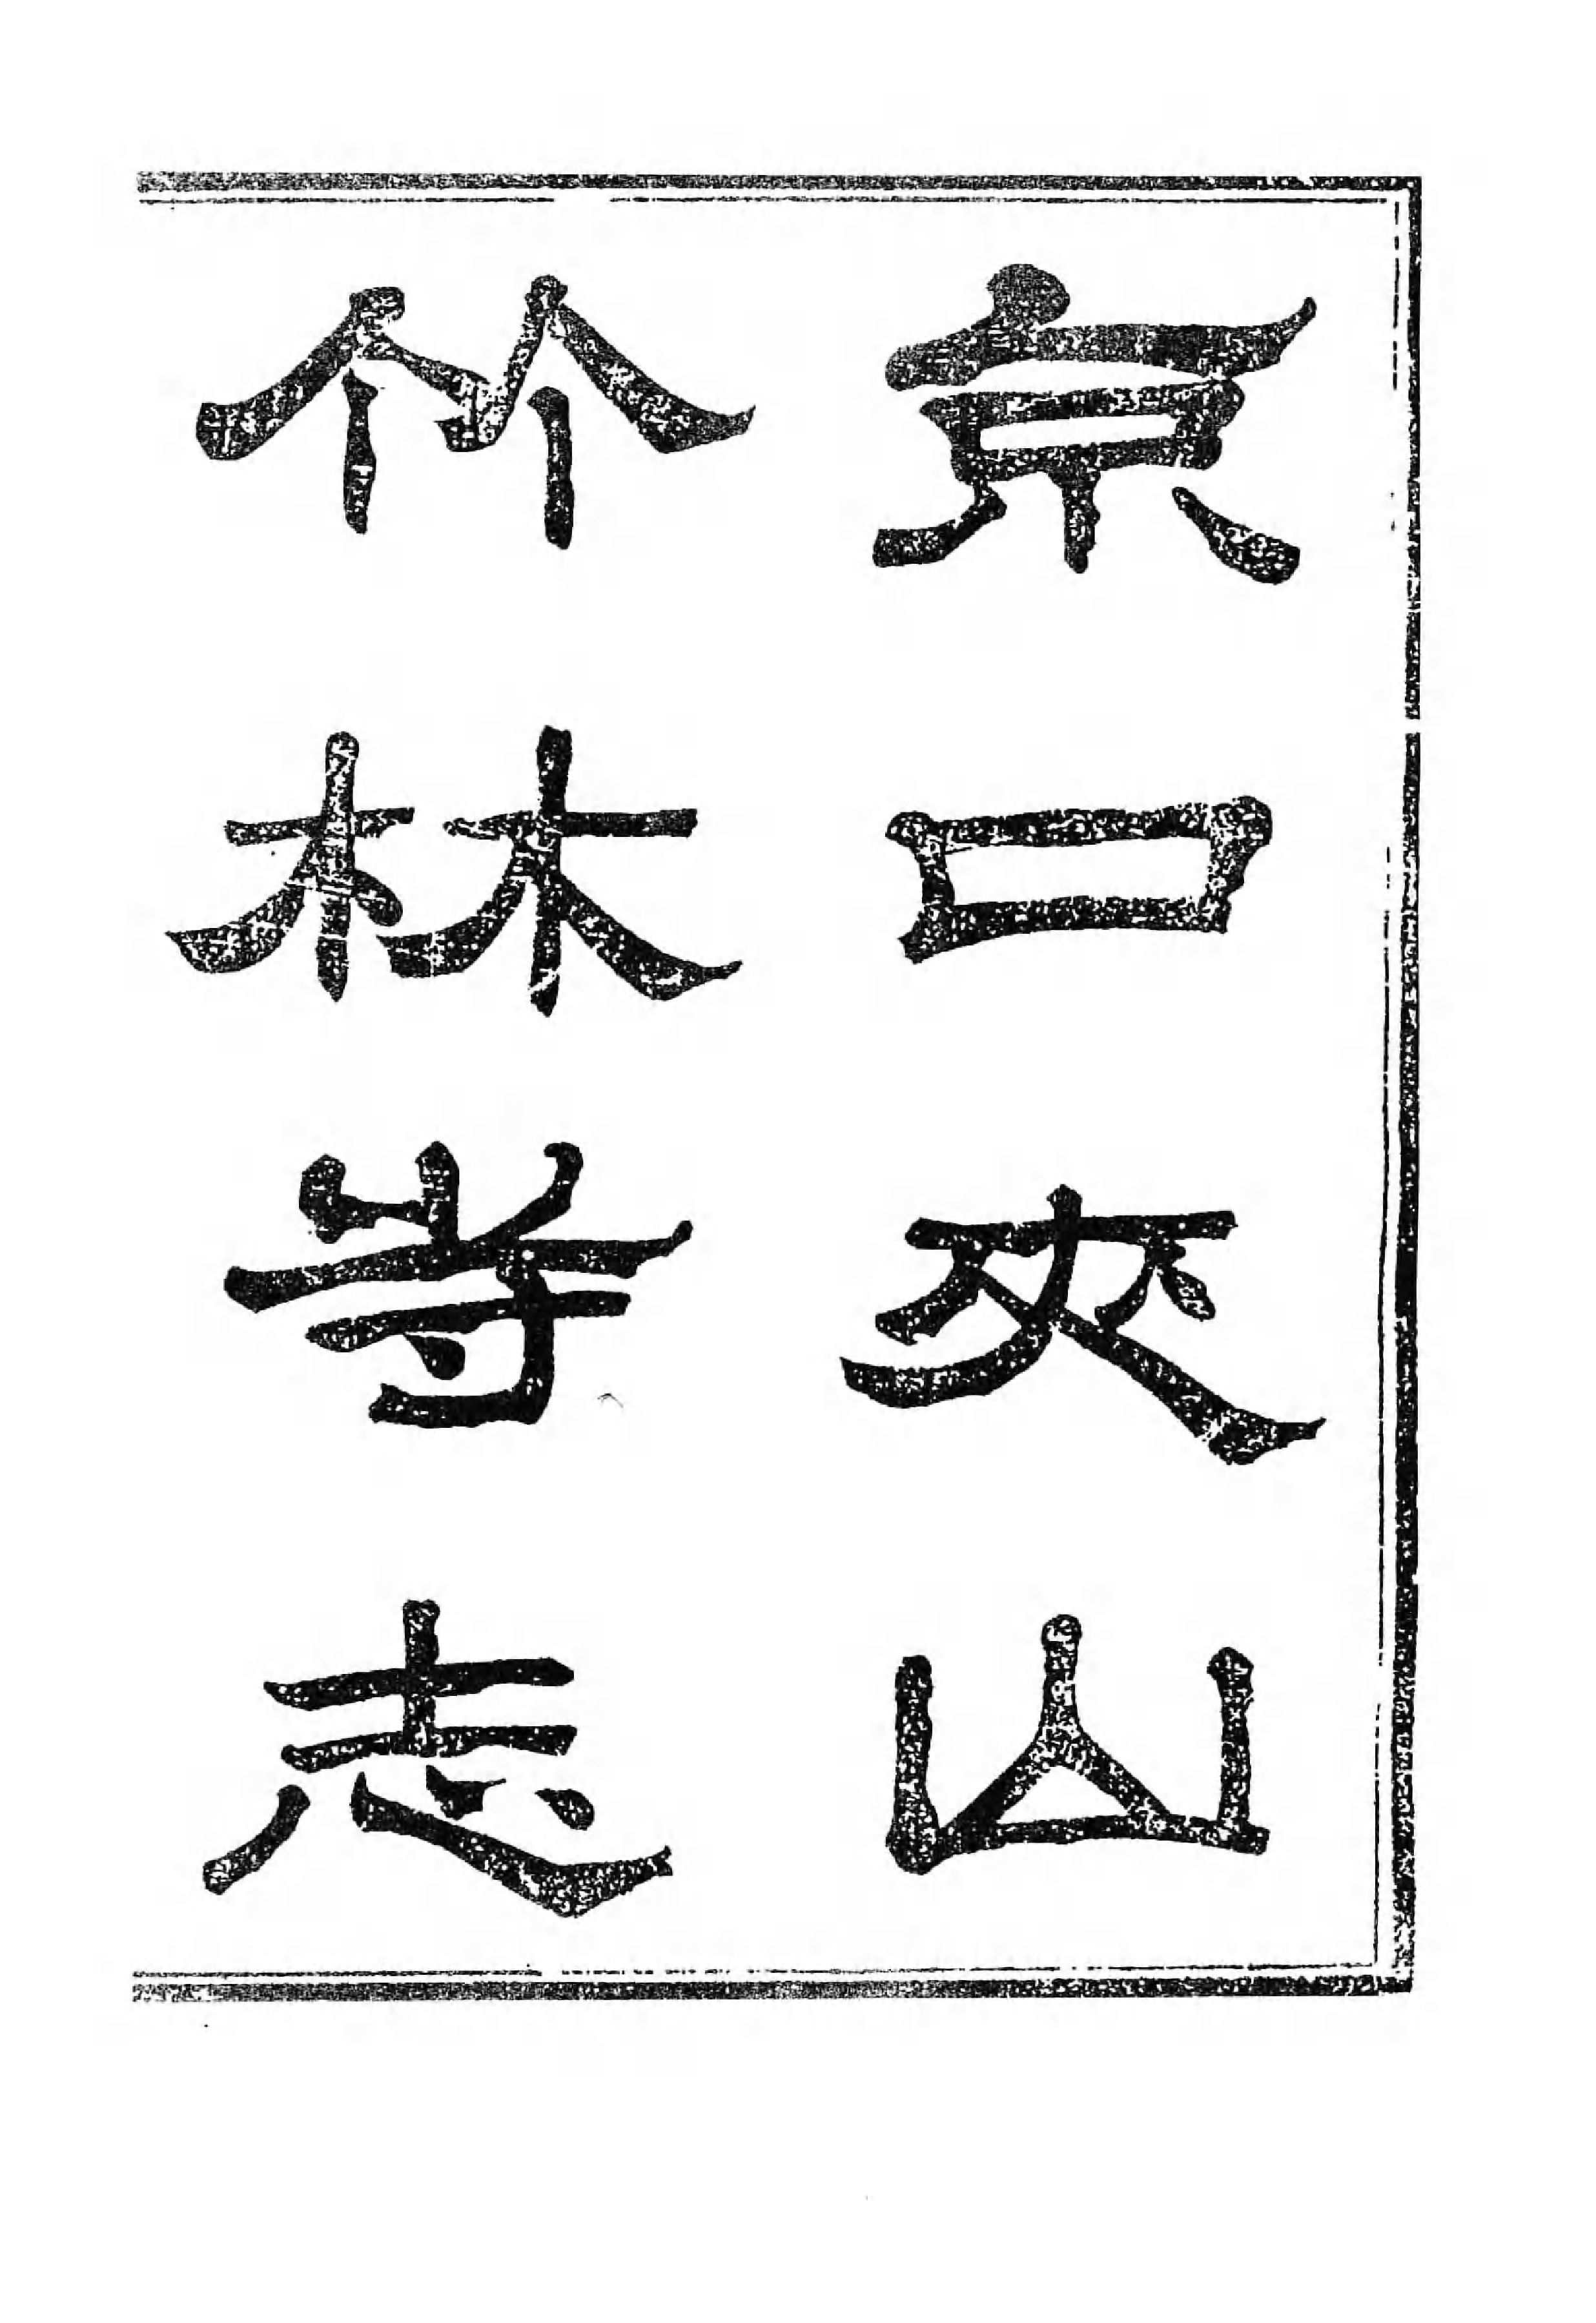 京口夾山
竹林寺志